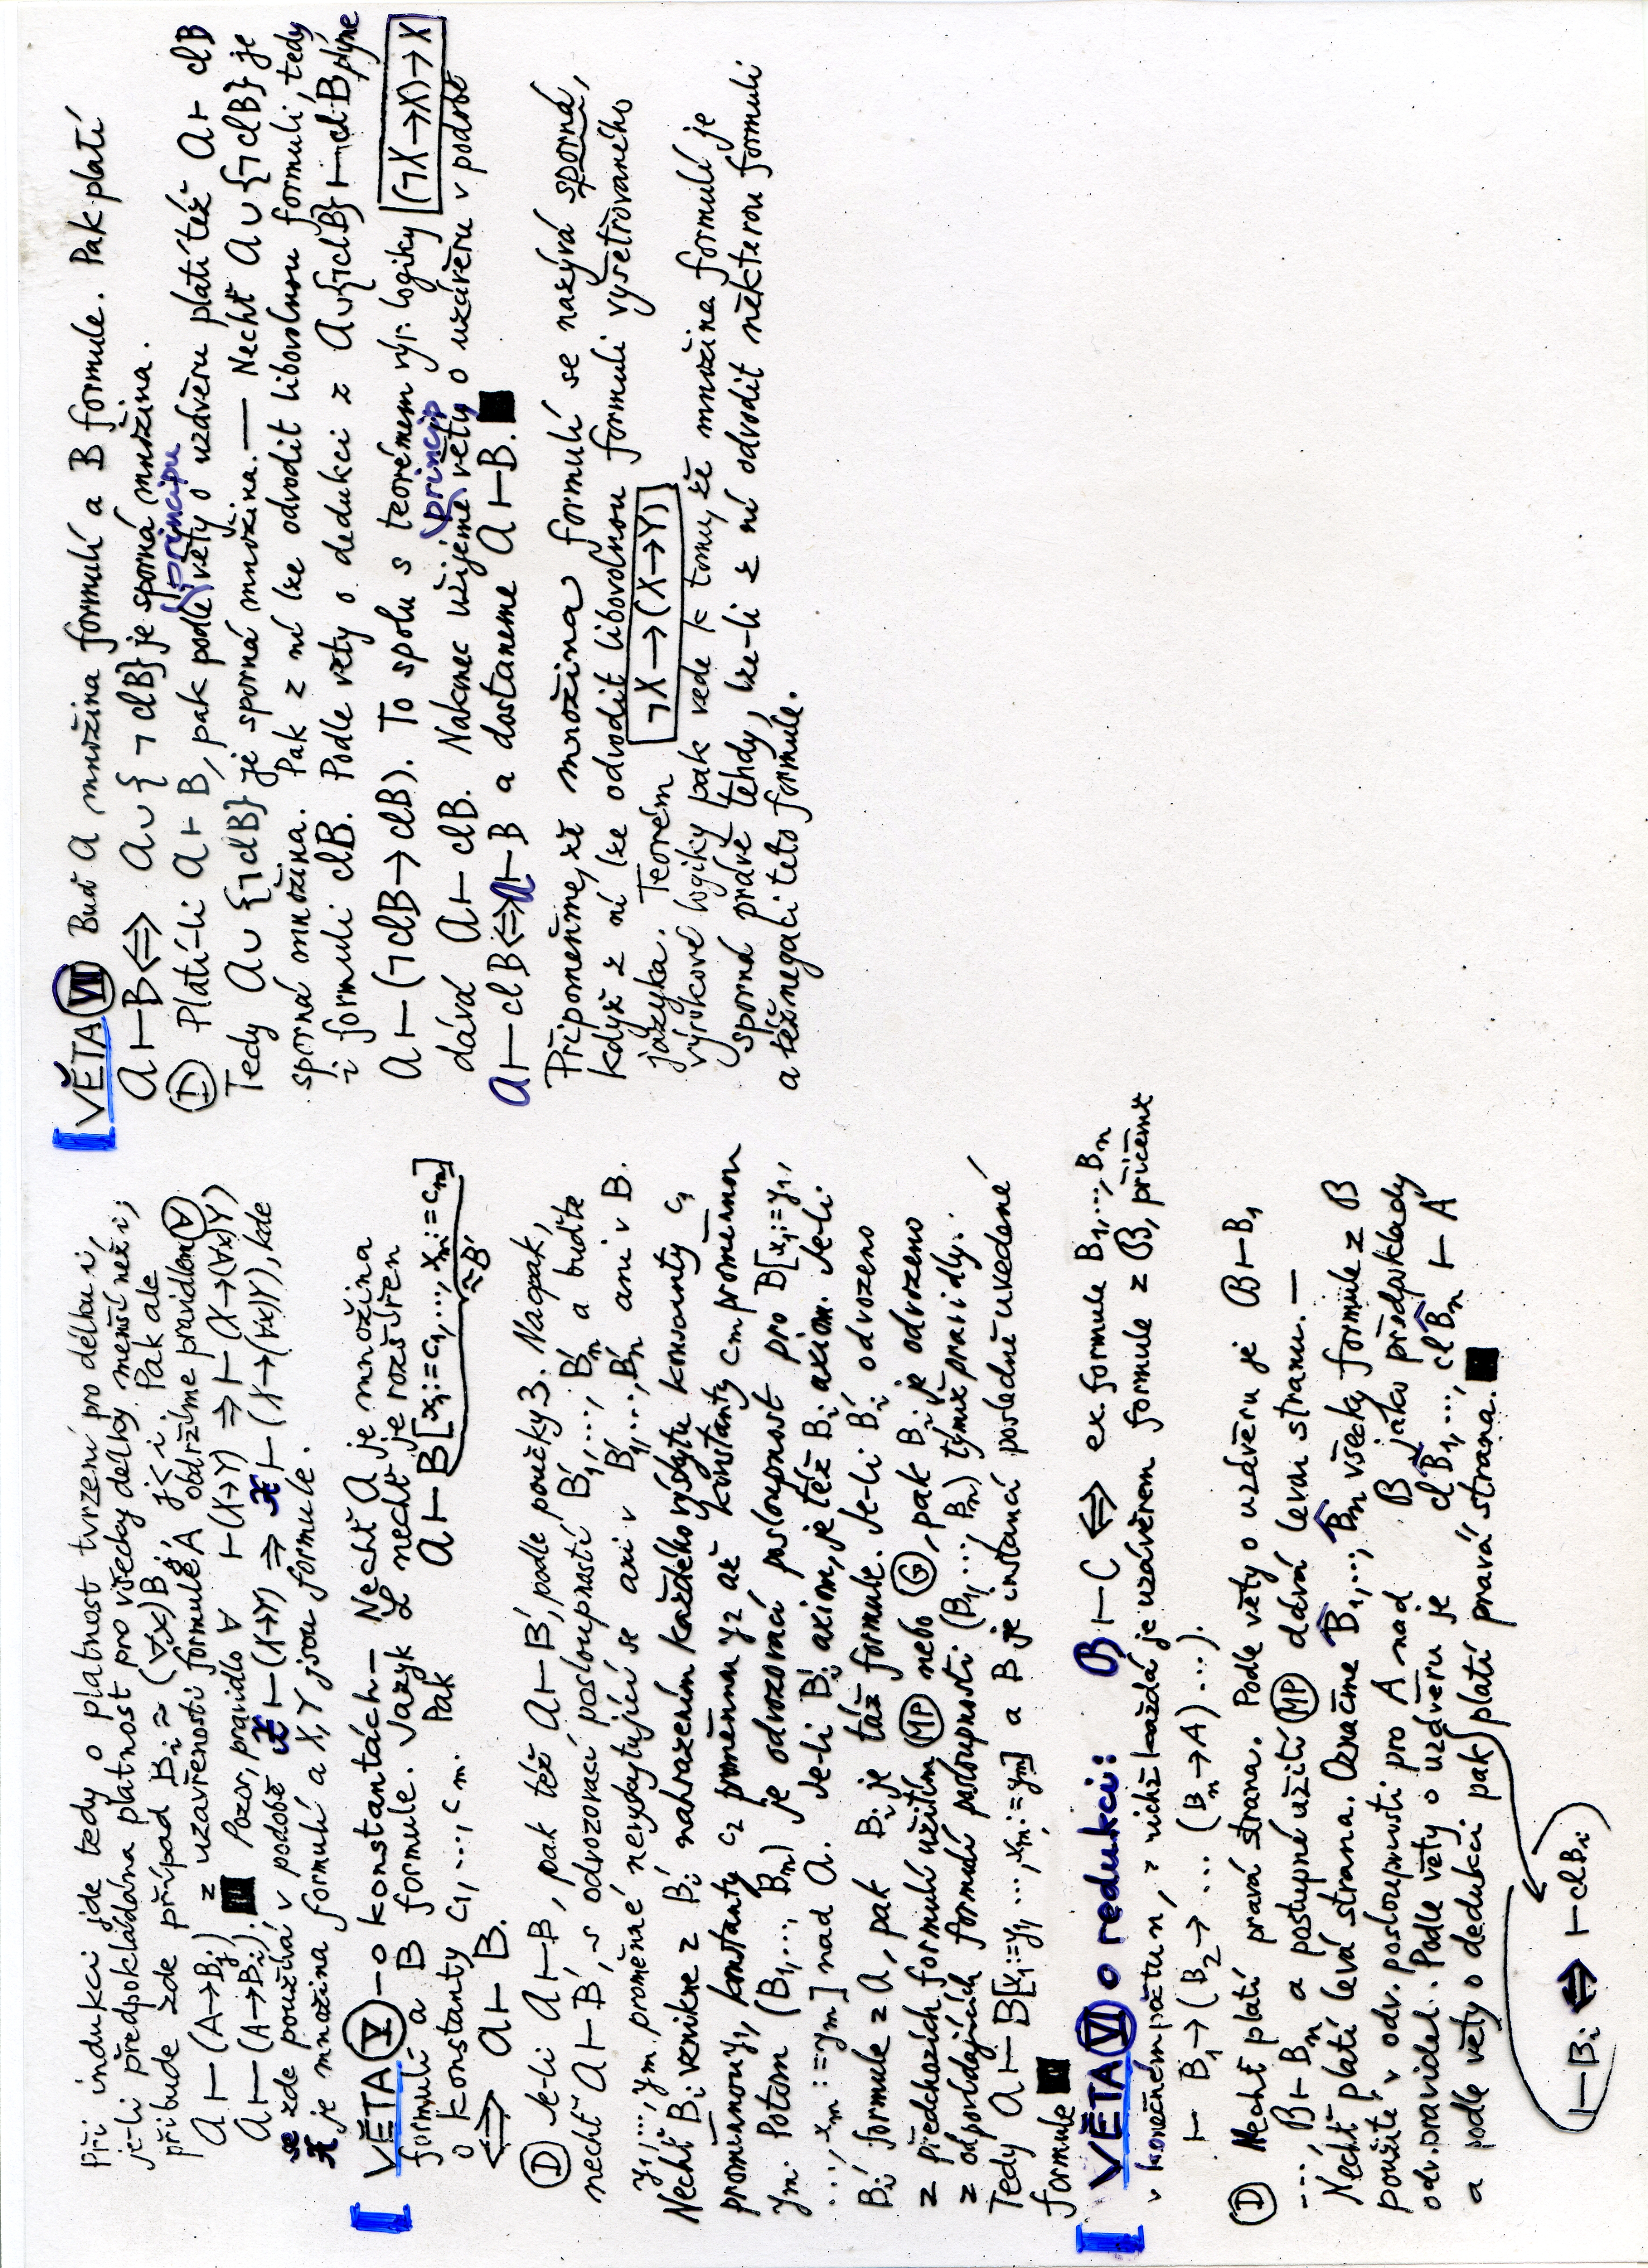 Při indukci jde tedy o platnost tvrzení pro délku i,
je-li předpokládána platnost pro všecky délky menší než i;
přibude zde případ Bᵢ ≈ (∀x)Bⱼ, j<i. Pak ale
A ⊢ (A→Bⱼ) z uzavřenosti formule A obdržíme pravidlem ∀
A ⊢ (A→Bᵢ). ■ Pozor, pravidlo ∀ ⊢(X→Y) ⇒ ⊢ (X→(∀x)Y)
se zde používá v podobě ⊢(X→Y) ⇒ ⊢ (X→(∀x)Y), kde
je množina formulí a X,Y jsou formule.
[VĚTA V – o konstantách – Nechť A je množina
formulí a B formule. Jazyk L nechť je rozšířen
o konstanty c₁, ..., cₘ. Pak A ⊢ B[x₁:=c₁, ..., xₘ:=cₘ]
≈B'
⇔ A ⊢ B.
(D) Je-li A ⊢ B, pak též A ⊢ B', podle poučky 3. Naopak,
nechť A ⊢ B' s odvozovací posloupností B'₁, ..., B'ₙ a buďte
y₁, ..., yₘ proměnné nevyskytující se ani v B'₁, ..., B'ₙ ani v B.
Nechť Bᵢ vznikne z B'ᵢ nahrazením každého výskytu konstanty c₁
proměnnou y₁, konstanty c₂ proměnnou y₂ až konstanty cₘ proměnnou
yₘ. Potom (B₁, ..., Bₙ) je odvozovací posloupnost pro B[x₁:=y₁,
..., xₘ:=yₘ] nad A. Je-li B'ᵢ axiom, je též Bᵢ axiom. Je-li
B'ᵢ formule z A, pak Bᵢ je táž formule. Je-li B'ᵢ odvozeno
z předchozích formulí užitím (MP) nebo (G), pak Bᵢ je odvozeno
z odpovídajících formulí posloupnosti (B₁, ..., Bₙ) týmiž pravidly.
Tedy A ⊢ B[x₁:=y₁, ..., xₘ:=yₘ] a B je instancí posledně uvedené
formule ■
[VĚTA VI o redukci: B ⊢ C ⇔ ex. formule B₁, ..., Bₙ
v konečném počtu n, z nichž každá je uzávěrem formule z B, přičemž
⊢ B₁→(B₂→ ... (Bₙ→A)...).
(D) Nechť platí pravá strana. Podle věty o uzávěru je B ⊢ B₁
..., B ⊢ Bₙ a postupné užití (MP) dává levou stranu. —
Nechť platí levá strana. Označme B₁, ..., Bₙ všecky formule z B
použité v odv. posloupnosti pro A nad B jako předpoklady
odv. pravidel. Podle věty o uzávěru je cl B₁, ..., cl Bₙ ⊢ A
a podle věty o dedukci pak platí pravá strana. ■
⊢ Bᵢ ⇔ ⊢ cl Bᵢ
[VĚTA VII Buď A množina formulí a B formule. Pak platí
A ⊢ B ⇔ A ∪ {¬ clB} je sporná množina.
(principu
(D) Platí-li A ⊢ B, pak podle věty o uzávěru platí též A ⊢ clB
Tedy A ∪ {¬clB} je sporná množina. — Nechť A ∪ {¬clB} je
sporná množina. Pak z ní lze odvodit libovolnou formuli, tedy
i formuli clB. Podle věty o dedukci z A∪{¬clB} ⊢ clB plyne
A ⊢ (¬clB → clB). To spolu s teorémem výr. logiky (¬X→X)→X
(princip
dává A ⊢ clB. Nakonec užijeme věty o uzávěru v podobě
A ⊢ clB ⇔ A ⊢ B a dostaneme A ⊢ B. ■
Připomeňme, že množina formulí se nazývá sporná,
když z ní lze odvodit libovolnou formuli vyšetřovaného
jazyka. Teorém ¬X→(X→Y)
výrokové logiky pak vede k tomu, že množina formulí je
sporná právě tehdy, lze-li z ní odvodit některou formuli
a též negaci této formule.